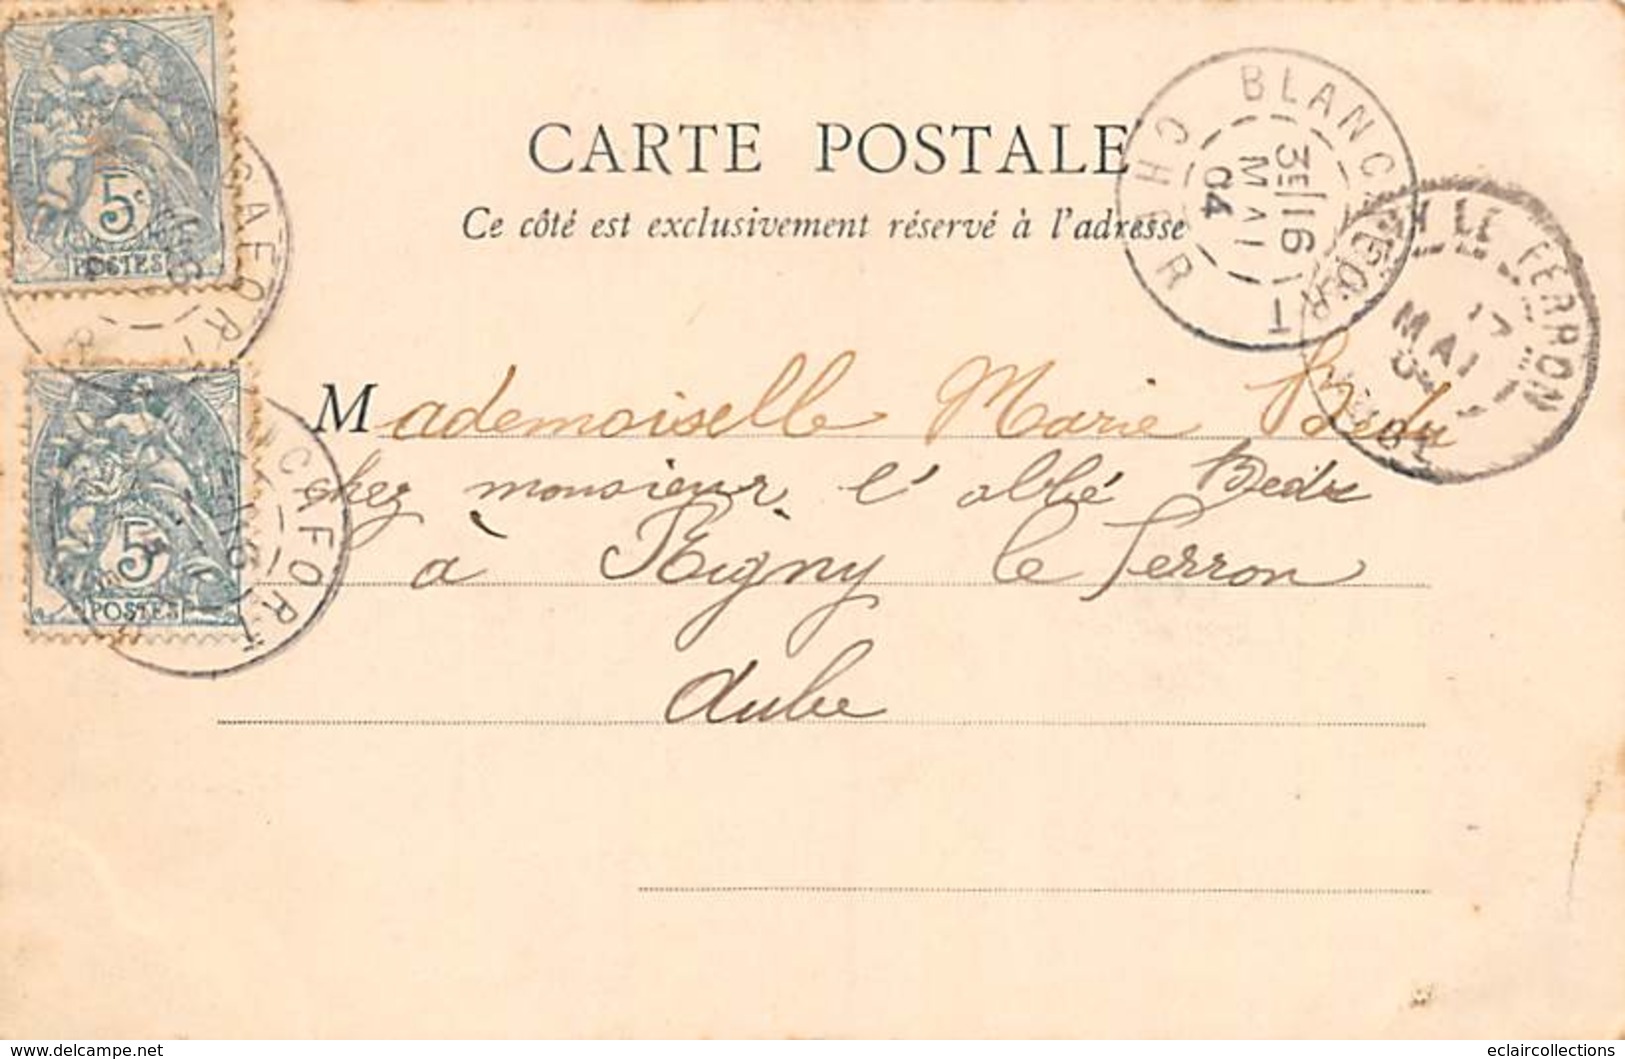 CARTE POSTALE
Ce côté est exclusivement réservé à l'adresse
Mademoiselle Marie Bedu
chez monsieur l'abbé Bedu
à Rigny le Ferron
Aube
5c
POSTES
CAFORT
5
POSTES
CAFORT
BLANCAFORT
CHER
3E/16
MAI
04
NY LE FERRON
17
MAI
04
www.delcampe.net
eclaircollections